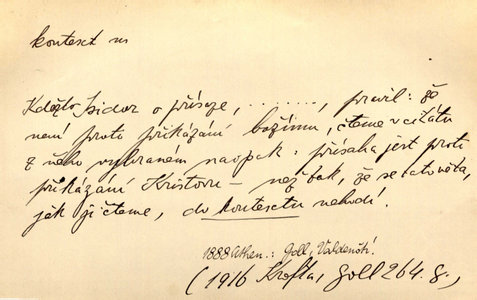 kontext m
Kdežto Isidor o přísaze, ........, pravil: že
není proti přikázání božímu, čteme v citátu
z něho vybraném naopak: přísaha jest proti
přikázání Kristovu – než bak, že se tato věta,
jak ji čteme, do kontextu nehodí.
1888 Athen.: Goll, Valdenští.
(1916 Krofta, Goll 264.g.,